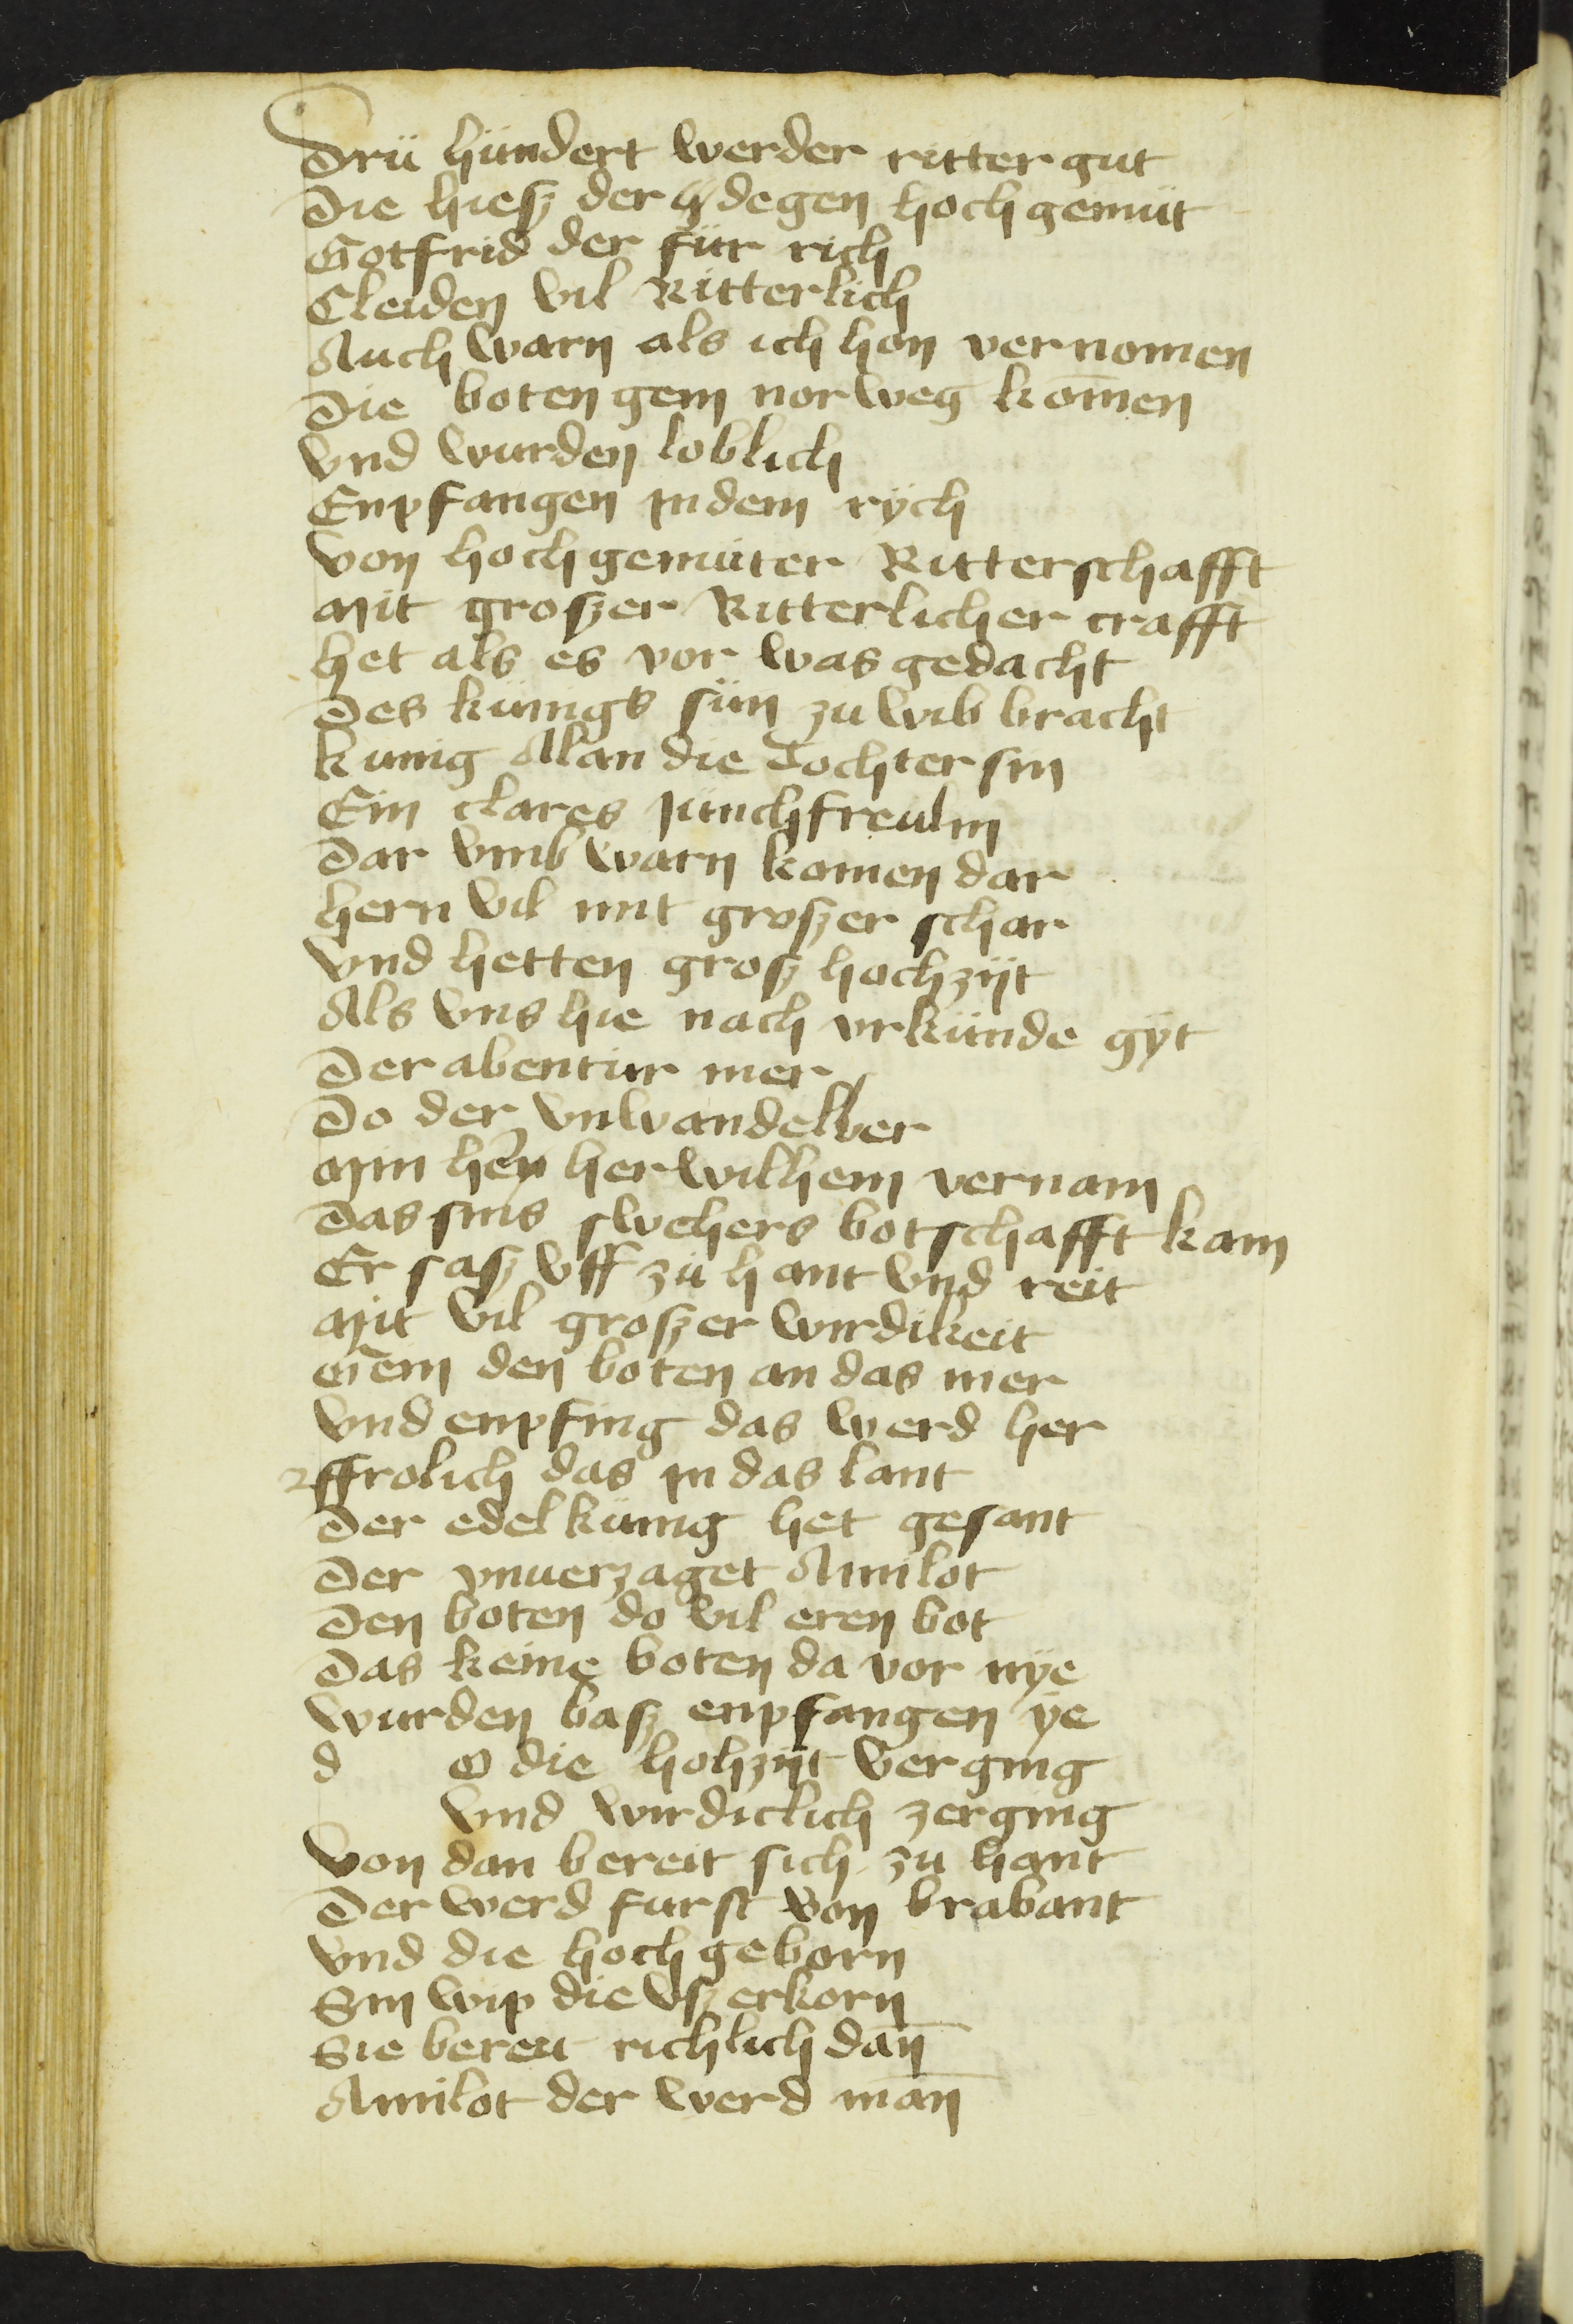 Drü hündert werder ritter gut
Die hiesz der degen hoch gemüt
Gotfrid der für rich
Cleiden vil Ritterlich
Auch warn als ich hon vernomen
Die boten gem norweg kom̄en
vnd wurden loblich
Enpfangen in dem rÿch
von hoch gemüter Ritterschafft
Mit groszer Ritterlicher crafft
het als es vor was gedacht
Des künigs sün zu wib bracht
kunig Alan die Tochter sin
Ein clares junchfreulin
Dar vmb warn komen dar
hern vil mit groszer schar
vnd hetten grosz hochzijt
Als vns hie nach vrkünde gÿt
Der abentür mer
Do der vnwandelber
Min hern her wilhem vernam
Das sins swehers botschafft kam
Er sasz vff zü hant vnd reit
Mit vil groszer wirdikeit
Gem den boten an das mer
vnd enpfing das werd her
ffrolich das in das lant
Der edel künig het gesant
Der vnuerzaget Amilot
Den boten do vil eren bot
Das keine boten da vor nÿe
wurden basz enpfangen ÿe
d o die hohzijt verging
vnd wirdiclich zerging
von dan bereit sich zu hant
Der werd furst von brabant
vnd die hoch geborn
Sin wip die vszerkorn
Sie bereit richlich dan̄
Amilot der werd man̄